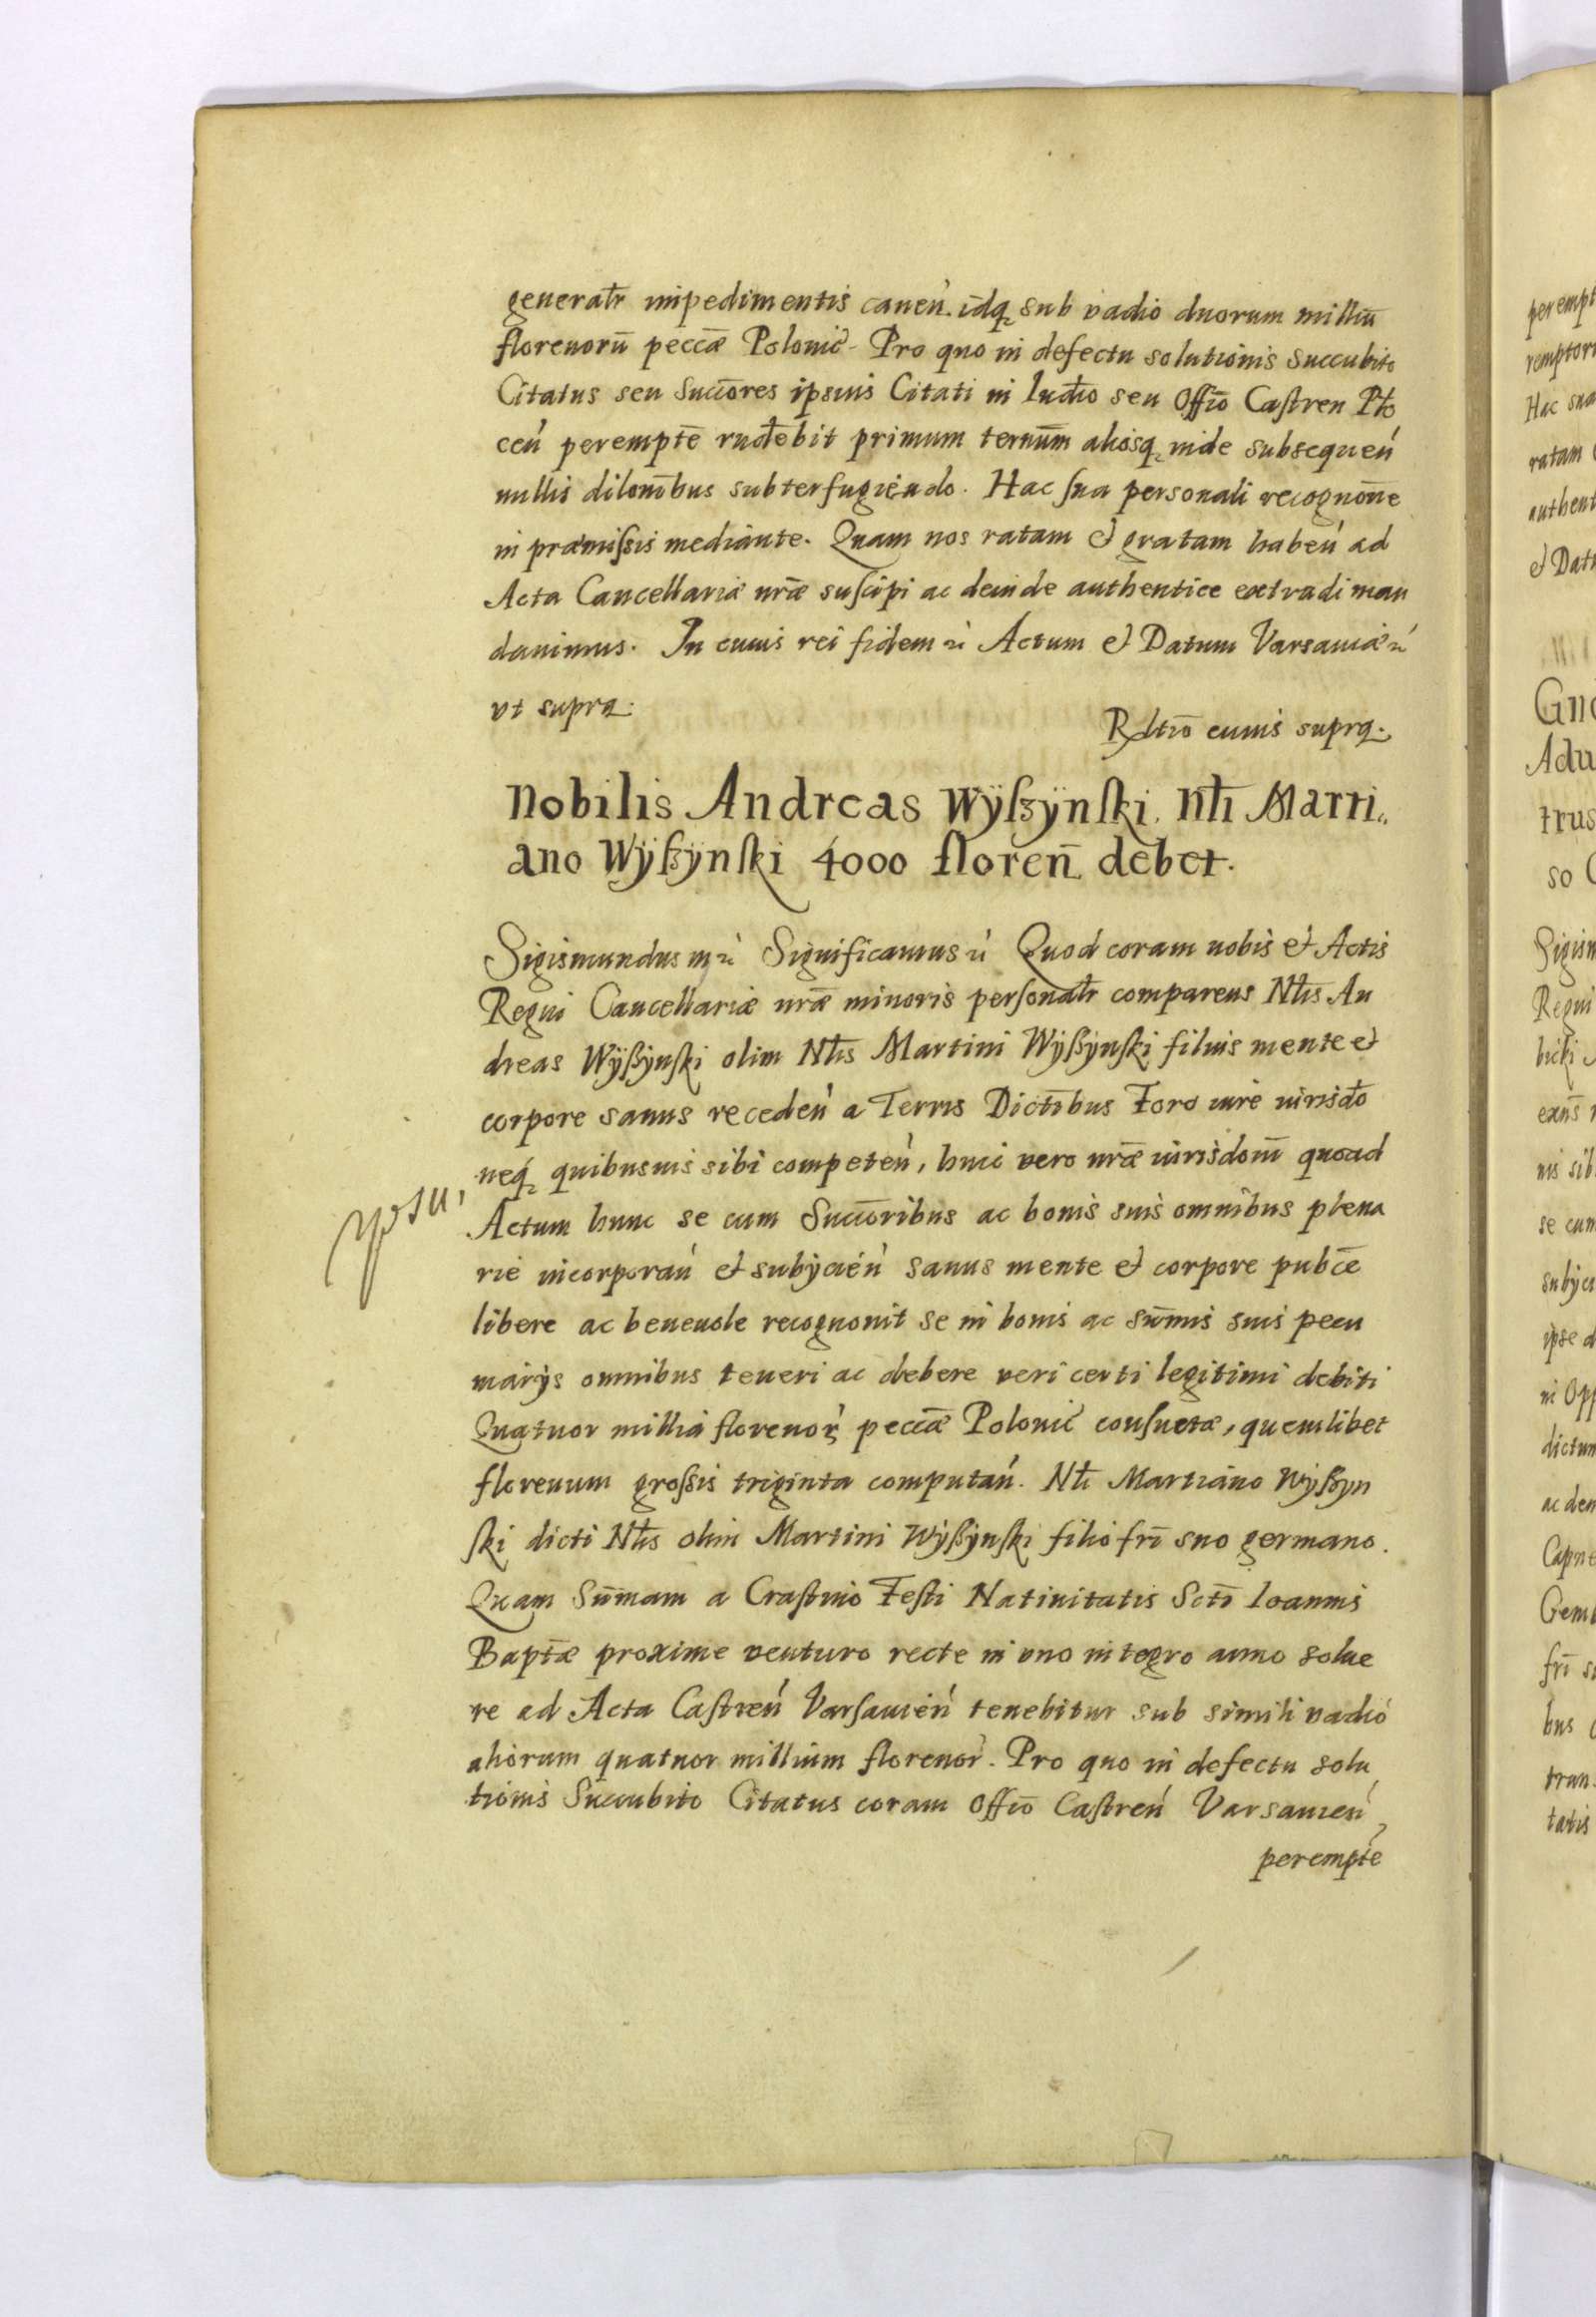 generatr̄ impedimentis caueń. idq̨ sub vadio duorum milliū
florenorū peccāe Polonić. Pro quo in defectu solutionis succubito
Citatus seu Succōres ipsius Citati in Iudīo seu Offīo Castren Pło
ceń perempte rńdebit primum ternūm aliosq̨ inde subsequeń
nullis dilonībus subterfugiendo. Hac sua personali recognōne
in præmissis mediante. Quam nos ratam et gratam habeń ad
Acta Cancellariæ nrāe suscipi ac deinde authentice extradi man
dauimus. In cuius rei fidem ń Actum et Datum Varsauiæ ń
vt supra.
Rltīo cuius supra.
Nobilis Andreas Wÿszÿnski. Nłi Marti„
ano Wÿszÿnski 4000 floreñ debet.
Sigismundus m ń Significamus ń Quod coram nobis et Actis
Regni Cancellariæ nrāe minoris personatr̄ comparens Nłis An
dreas Wÿszÿnski olim Nłis Martini Wÿszÿnski filius mente et
corpore sanus recedeń a Terris Dictībus Foro iure iurisdō
neq̨ quibusuis sibi competeń, huic vero nrāe iurisdonī quoad
Actum hunc se cum Succōribus ac bonis suis omnibus plena
rie incorporań et subÿcień sanus mente et corpore pubcē
libere ac beneuole recognouit se in bonis ac sūmis suis pecu
niarÿs omnibus teneri ac debere veri certi legitimi debiti
Quatuor millia florenor̨ peccāe Polonić consuetæ, quemlibet
florenum grossis triginta computań. Nłi Martiano Wÿszyn
ski dicti Nłis olim Martini Wÿszÿnski filio frī suo germano.
Quam Sūmam a Crastino Festi Natiuitatis Sctī Ioannis
Baptāe proxime venturo recte in vno integro anno solue
re ad Acta Castreń Varsauień tenebitur sub simili vadio
aliorum quatuor millium florenor̀. Pro quo in defectu solu
tionis Succubito Citatus coram Offīo Castreń Varsauień
perempte